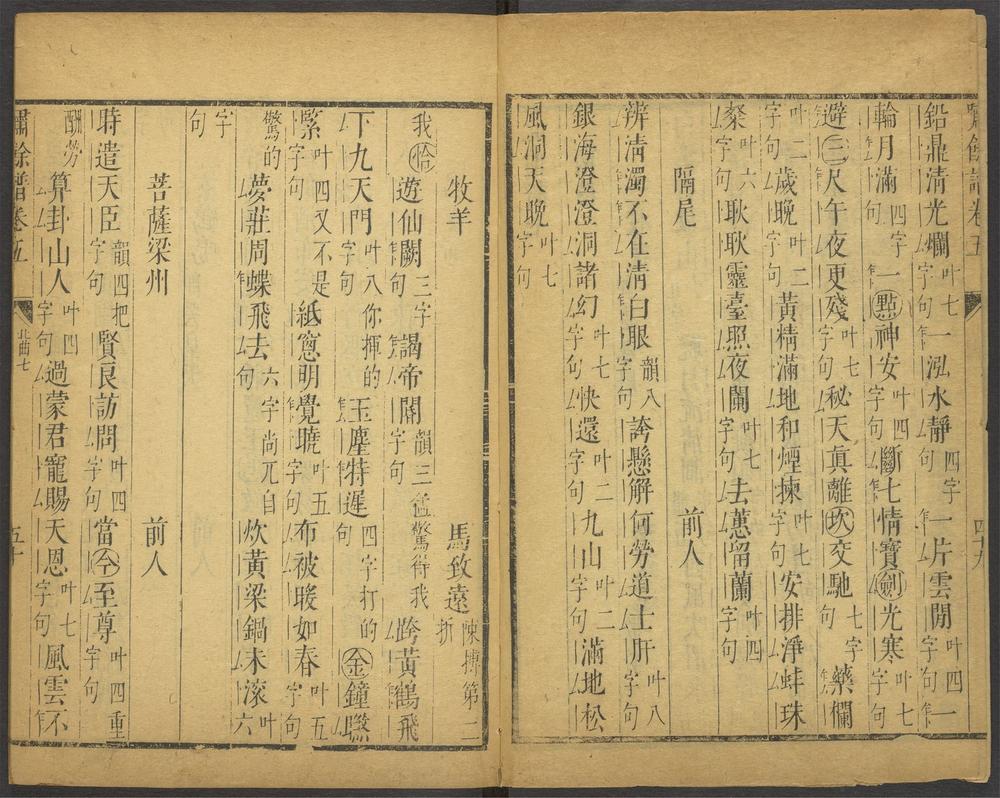 嘯餘譜卷五 四十九
鉛鼎清光爛叶七字句一泓水靜四字句一片雲閒叶四字句一
輪月滿四字句一點神安叶四字句斷七情寶劍光寒叶七字句
避三尺午夜更殘叶七字句秘天真離坎交馳七字句藥欄
叶二字句歲晚叶二字句黃精滿地和煙揀叶七字句安排淨蚌珠
粲叶六字句耿耿靈臺照夜闌叶七字句去蕙留蘭叶四字句
隔尾 前人
辨清濁不在清白眼韻八字句誇懸解何勞道士肝叶八字句
銀海澄澄洞諸幻叶七字句快還叶二字句九山叶二字句滿地松
風洞天晚叶七字句
牧羊 馬致遠陳摶第二折
我恰遊仙闕三字句謁帝閽韻三字句猛驚得我跨黃鶴飛
下九天門叶八字句你揮的玉麈特遲四字句打的金鐘聯
緊叶四字句又不是紙窗明覺曉叶五字句布被暖如春叶五字句
驚的夢莊周蝶飛去六字句尚兀自炊黃粱鍋未滾叶六
字句
菩薩梁州 前人
時遣天臣韻四字句把賢良訪問叶四字句當今至尊叶四字句重
酬勞算卦山人叶四字句過蒙君寵賜天恩叶七字句風雲不
嘯餘譜卷五 北曲七 五十